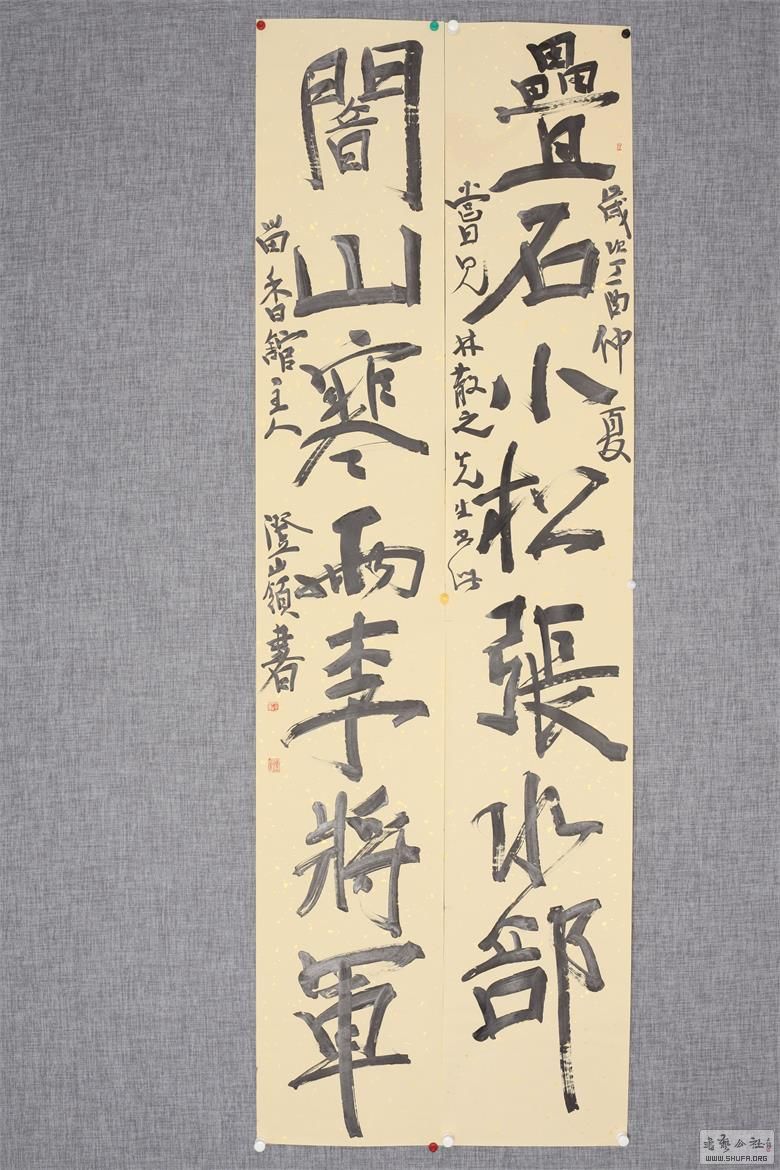 歲次丁酉仲夏
疊石小松張水部
嘗見林散之先生書
闇山寒雨李將軍
畱香館主人
書藝公社
WWW.SHUFA.ORG